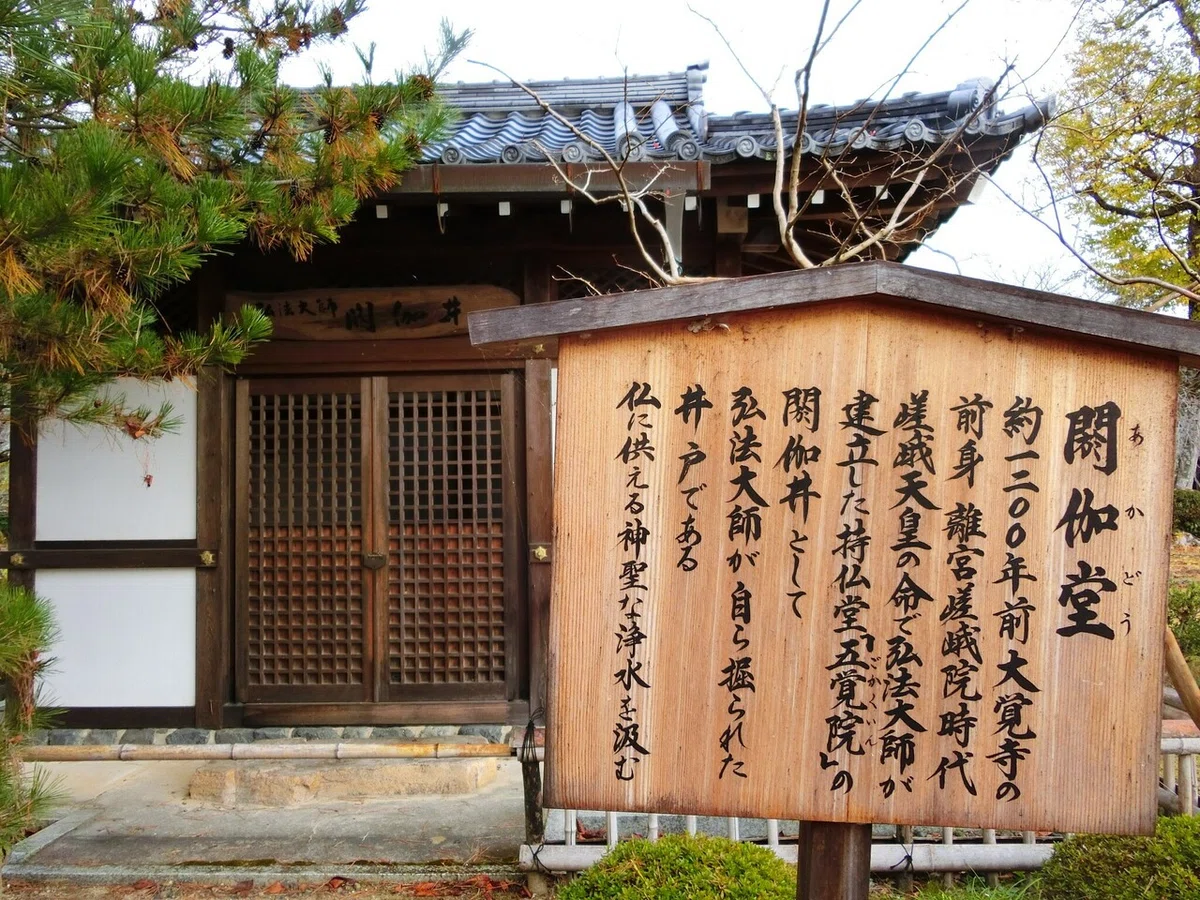 閼伽堂
あかどう
約一二〇〇年前大覚寺の
前身 離宮嵯峨院時代
嵯峨天皇の命で弘法大師が
建立した持仏堂「五覚院」の
ごかくいん
閼伽井として
弘法大師が自ら掘られた
井戸である
仏に供える神聖な浄水を汲む
弘法大師 閼伽井